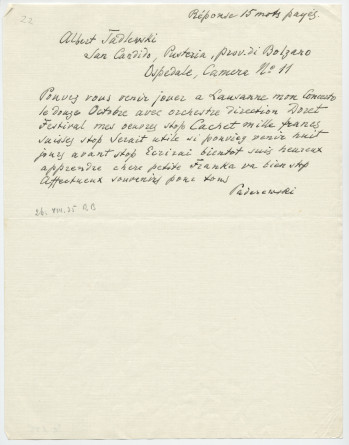 22
Réponse 15 mots payés.
Albert Tadlewski
San Candido, Pusteria, prov. di Bolzano
Ospedale, Camera No 11
Pouvez vous venir jouer a Lausanne mon Concerto
le douze Octobre avec orchestre direction Doret
Festival mes oeuvres stop Cachet mille francs
suisses stop Serait utile si pouviez venir huit
jours avant stop Ecrirai bientot suis heureux
apprendre chere petite Franka va bien stop
Affectueux souvenirs pour tous
Paderewski
26. VIII. 35